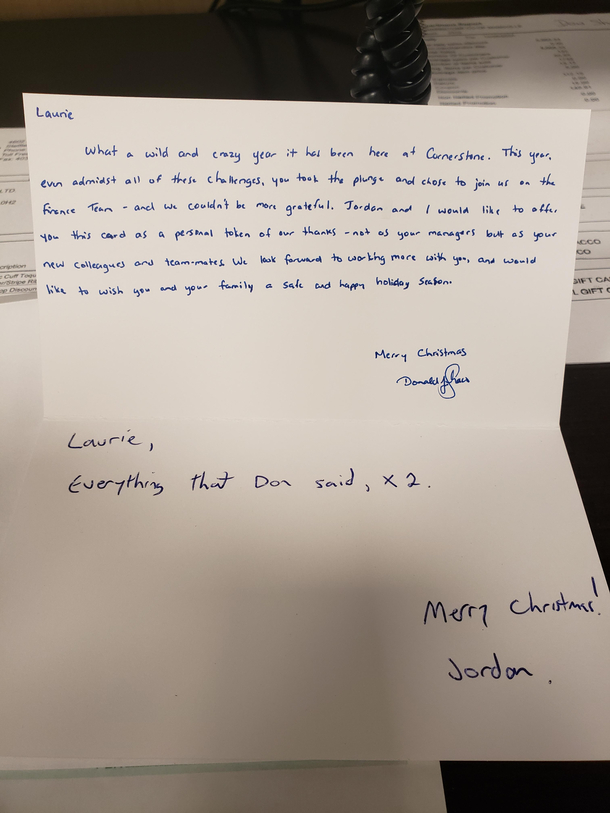 Laurie
What a wild and crazy year it has been here at Cornerstone. This year,
even admidst all of these challenges, you took the plunge and chose to join us on the
Finance Team - and we couldn't be more grateful. Jordan and I would like to offer
you this card as a personal token of our thanks - not as your managers but as your
new colleagues and team-mates. We look forward to working more with you, and would
like to wish you and your family a safe and happy holiday season.
Merry Christmas
Donald
Laurie,
Everything that Don said, x 2.
Merry Christmas!
Jordan.